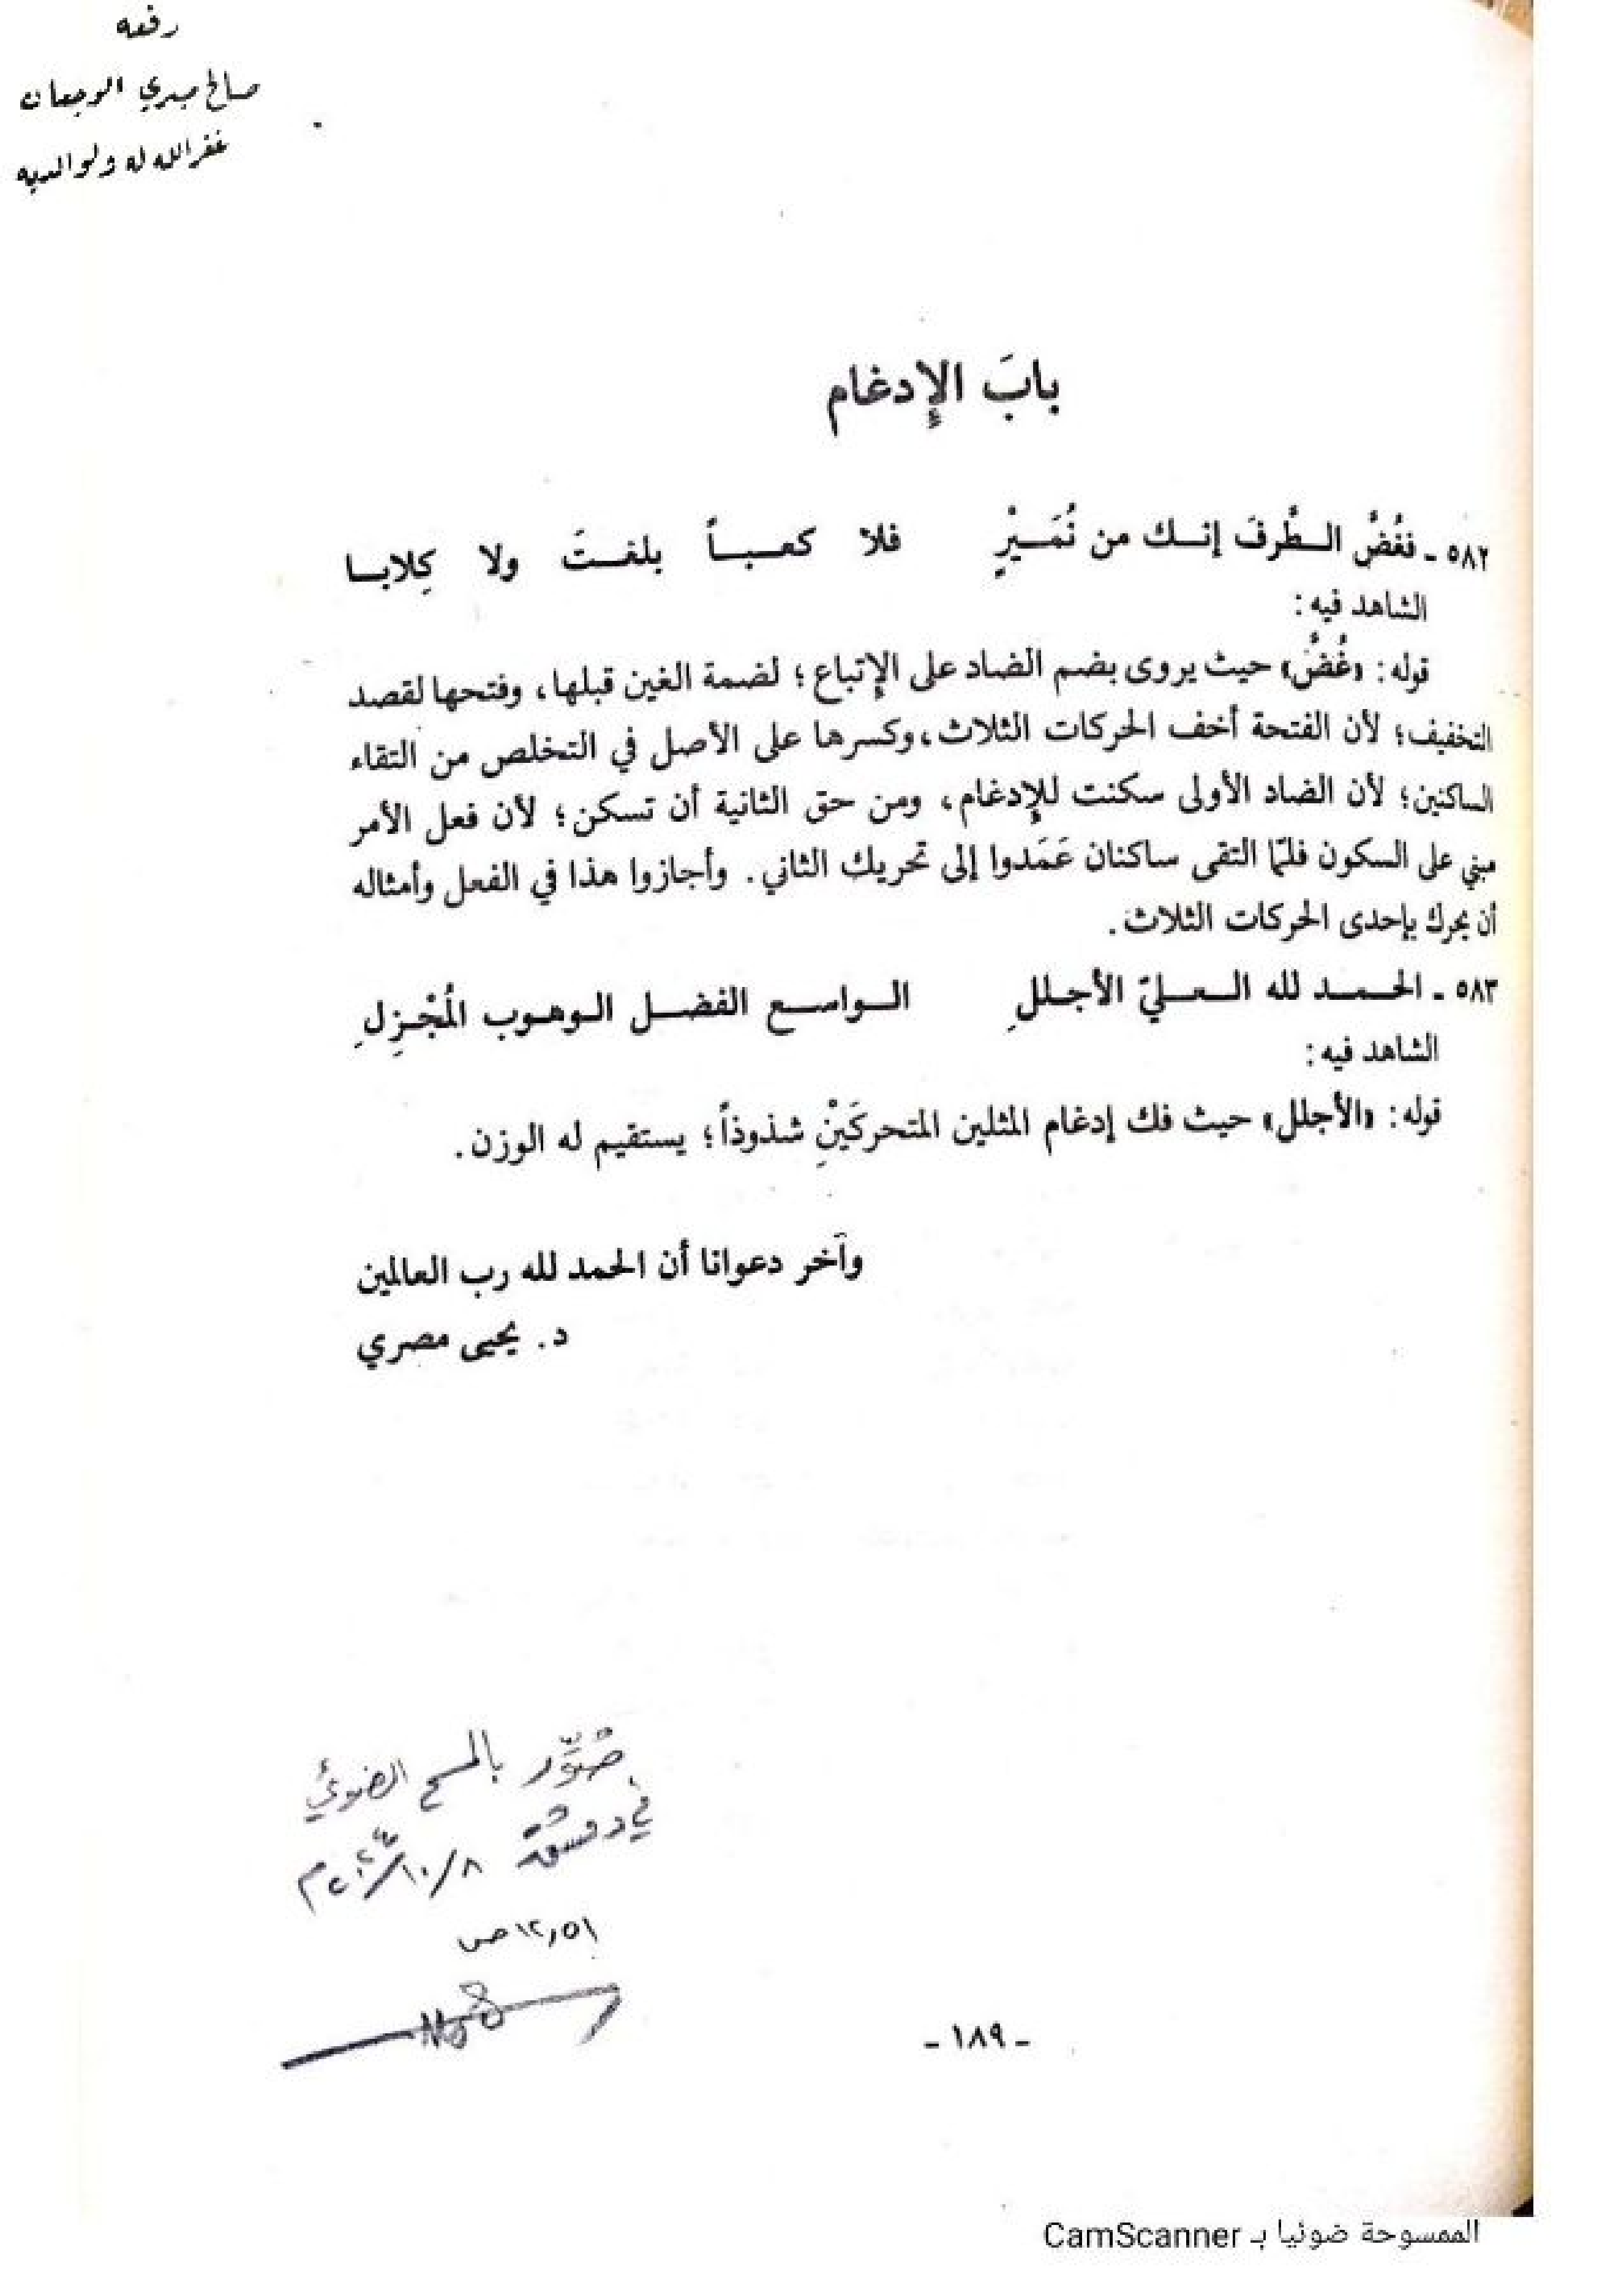 رفعه
صالح صبري الوجعان
غفر الله له ولوالديه
بابَ الإدغام
٥٨٢ ـ نغُضُّ الطَّرفَ إنك من نُمَيْرٍ فلا كعباً بلغتَ ولا كِلابا
الشاهد فيه:
قوله: «غُضُّ» حيث يروى بضم الضاد على الإتباع؛ لضمة الغين قبلها، وفتحها لقصد
التخفيف؛ لأن الفتحة أخف الحركات الثلاث، وكسرها على الأصل في التخلص من التقاء
الساكنين؛ لأن الضاد الأولى سكنت للإدغام، ومن حق الثانية أن تسكن؛ لأن فعل الأمر
مبني على السكون فلمّا التقى ساكنان عَمَدوا إلى تحريك الثاني. وأجازوا هذا في الفعل وأمثاله
أن يحرك بإحدى الحركات الثلاث.
٥٨٣ ـ الحمد لله العليّ الأجللِ الواسع الفضل الوهوب المُجْزِلِ
الشاهد فيه:
قوله: «الأجلل» حيث فك إدغام المثلين المتحركَيْنِ شذوذاً؛ يستقيم له الوزن.
وآخر دعوانا أن الحمد لله رب العالمين
د. يحيى مصري
صُوِّر بالمسح الضوئي
في دمشق ١٠/٨
١٢,٥١ ص
ـ ١٨٩ ـ
الممسوحة ضوئيا بـ CamScanner